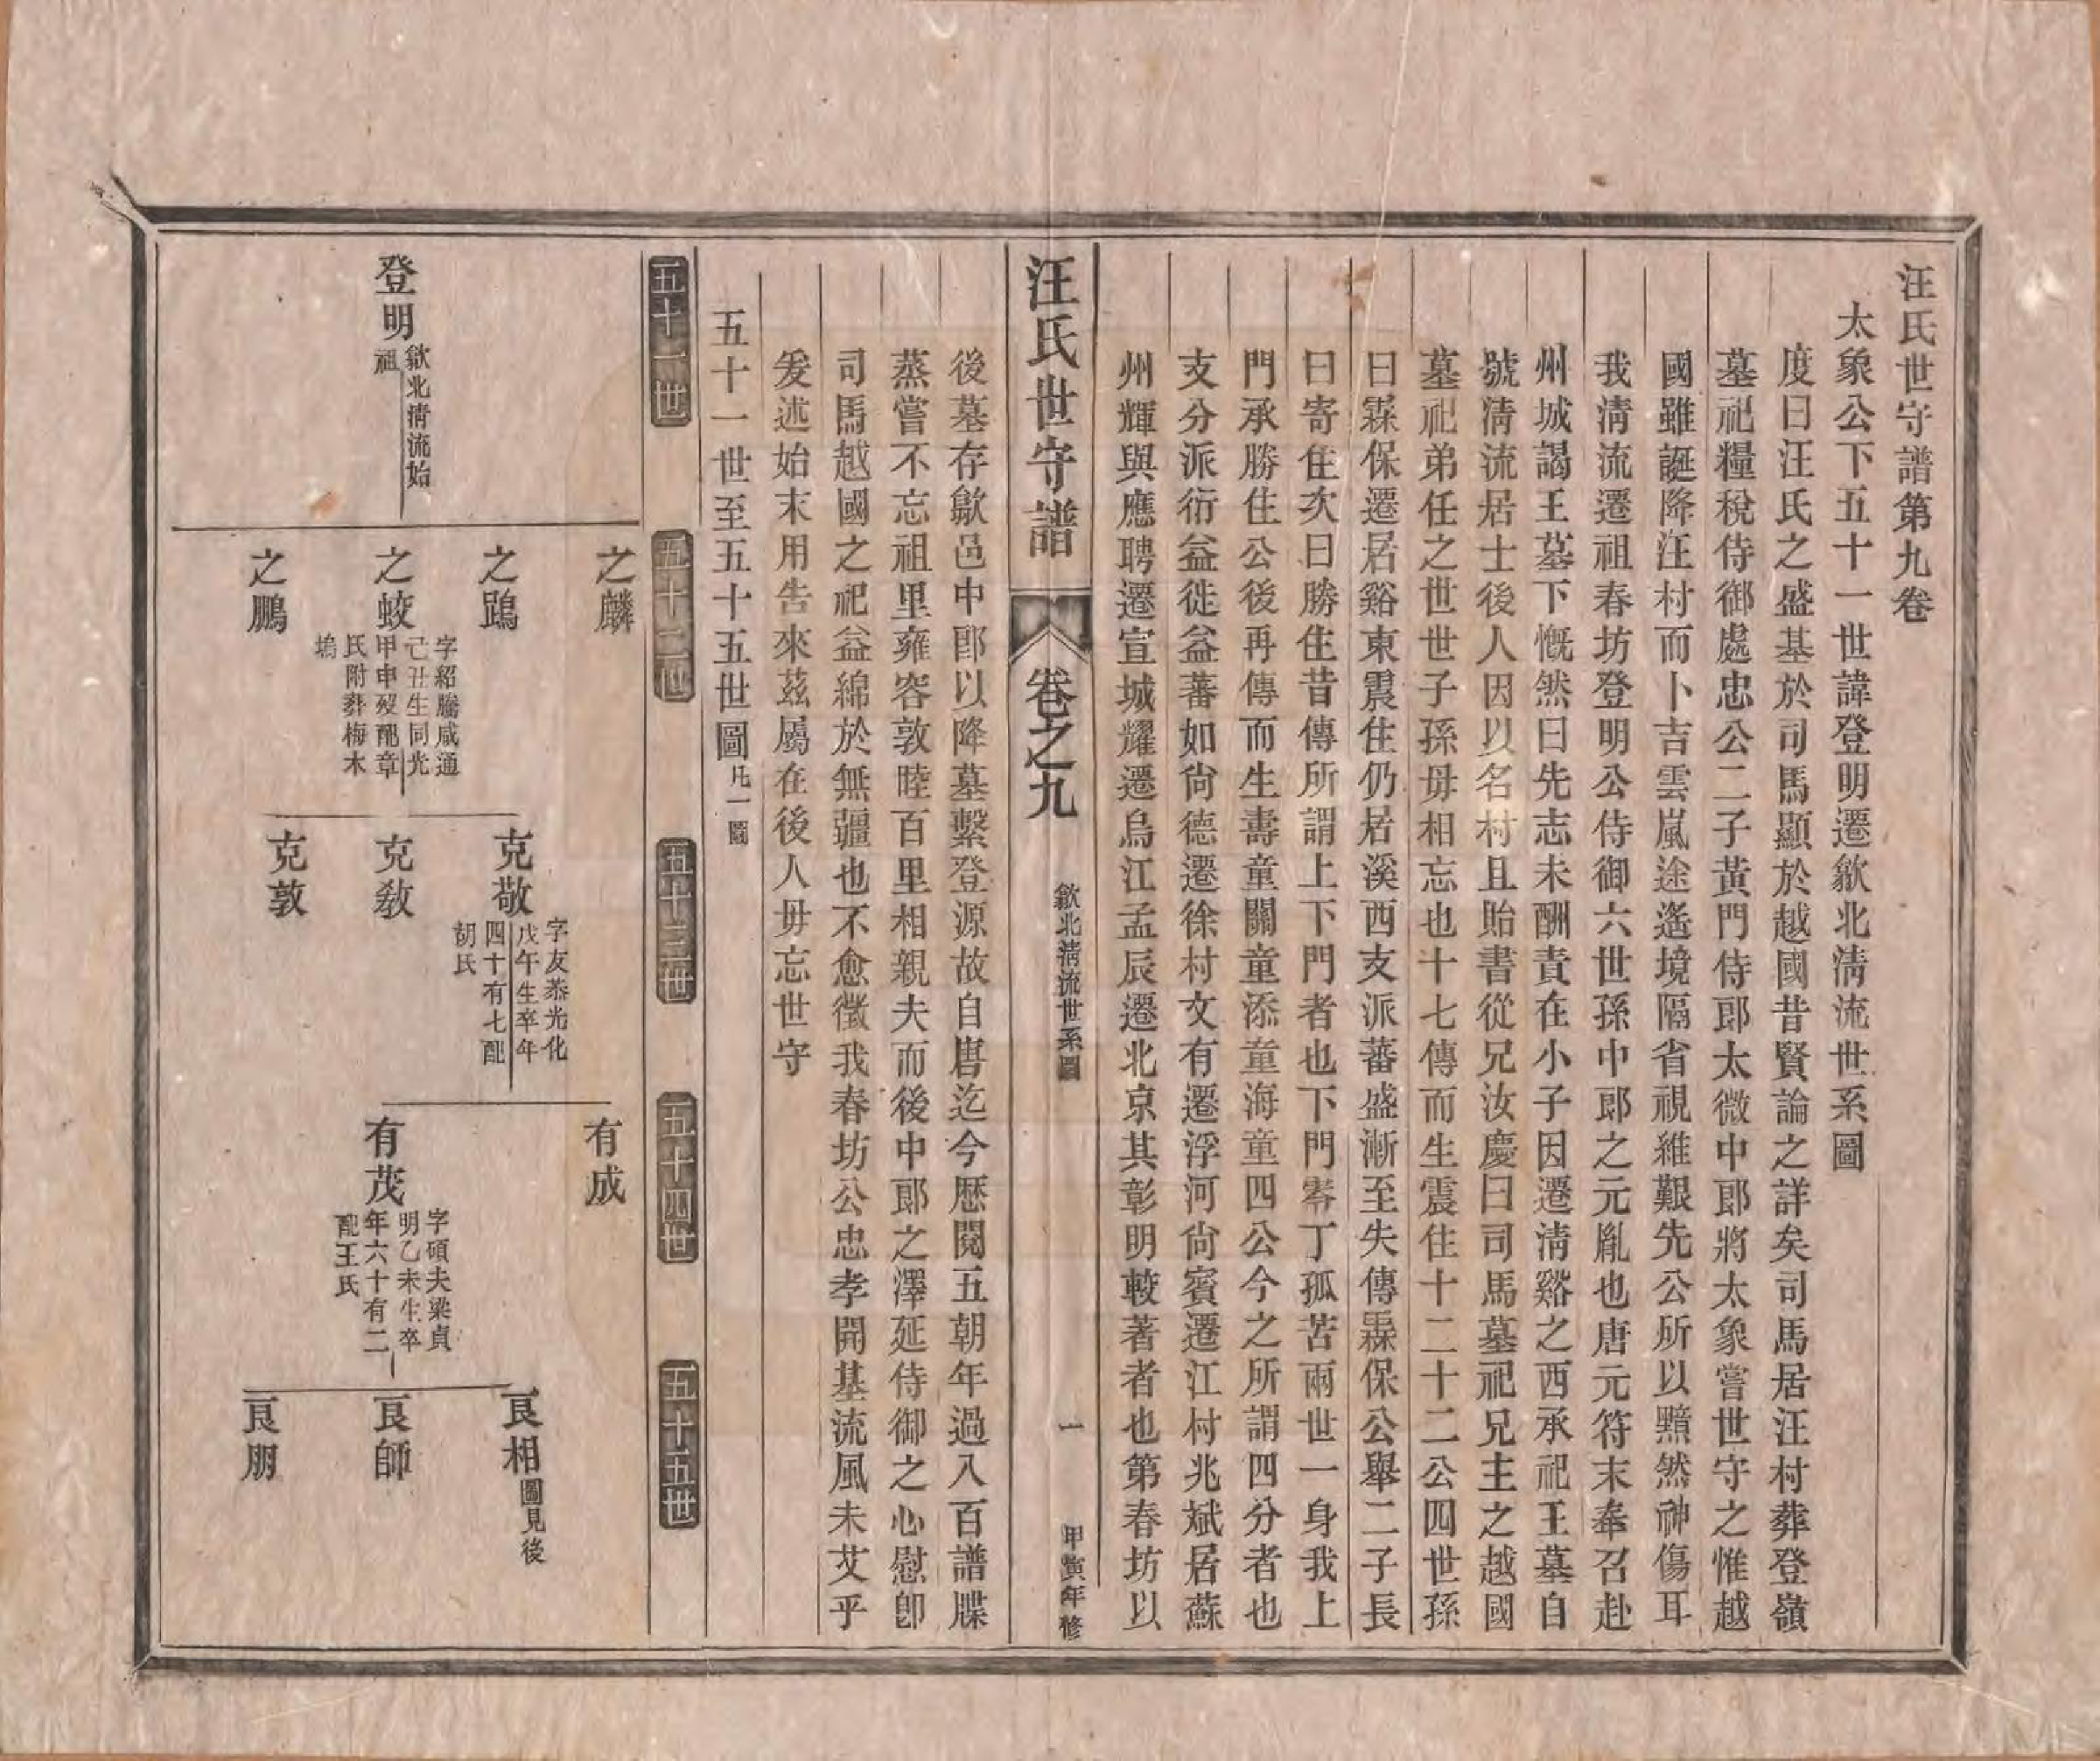 汪氏世守譜第九卷
太象公下五十一世諱登明遷歙北淸流世系圖
度曰汪氏之盛基於司馬顯於越國昔賢論之詳矣司馬居汪村葬登嶺
墓祀糧稅侍御處忠公二子黃門侍郎太微中郎將太象嘗世守之惟越
國雖誕降汪村而卜吉雲嵐途遙境隔省視維艱先公所以黯然神傷耳
我淸流遷祖春坊登明公侍御六世孫中郎之元胤也唐元符末奉召赴
州城謁王墓下慨然曰先志未酬責在小子因遷淸谿之西承祀王墓自
號淸流居士後人因以名村且貽書從兄汝慶曰司馬墓祀兄主之越國
墓祀弟任之世世子孫毋相忘也十七傳而生震住十二十二公四世孫
曰霖保遷居谿東震住仍居溪西支派蕃盛漸至失傳霖保公舉二子長
曰寄住次曰勝住昔傳所謂上下門者也下門零丁孤苦兩世一身我上
門承勝住公後再傳而生壽童關童添童海童四公今之所謂四分者也
支分派衍益徙益蕃如尙德遷徐村文有遷浮河尙賓遷江村兆斌居蘇
州輝與應聘遷宣城耀遷烏江孟辰遷北京其彰明較著者也第春坊以
汪氏世守譜
卷之九
歙北淸流世系圖
一
甲寅年修
後墓存歙邑中郎以降墓繫登源故自唐迄今歷閱五朝年過入百譜牒
蒸嘗不忘祖里雍容敦睦百里相親夫而後中郎之澤延侍御之心慰卽
司馬越國之祀益綿於無疆也不愈徵我春坊公忠孝開基流風未艾乎
爰述始末用告來茲屬在後人毋忘世守
五十一世至五十五世圖凡一圖
五十一世
五十二世
五十三世
五十四世
五十五世
登明
歙北淸流始
祖
之麟
之鵾
之蛟
字紹騰咸通
己丑生同光
甲申歿配章
氏附葬梅木
塢
之鵬
克敬
字友恭光化
戊午生卒年
四十有七配
胡氏
克敎
克敦
有成
有茂
字碩夫梁貞
明乙未生卒
年六十有二
配王氏
良相圖見後
良師
良朋